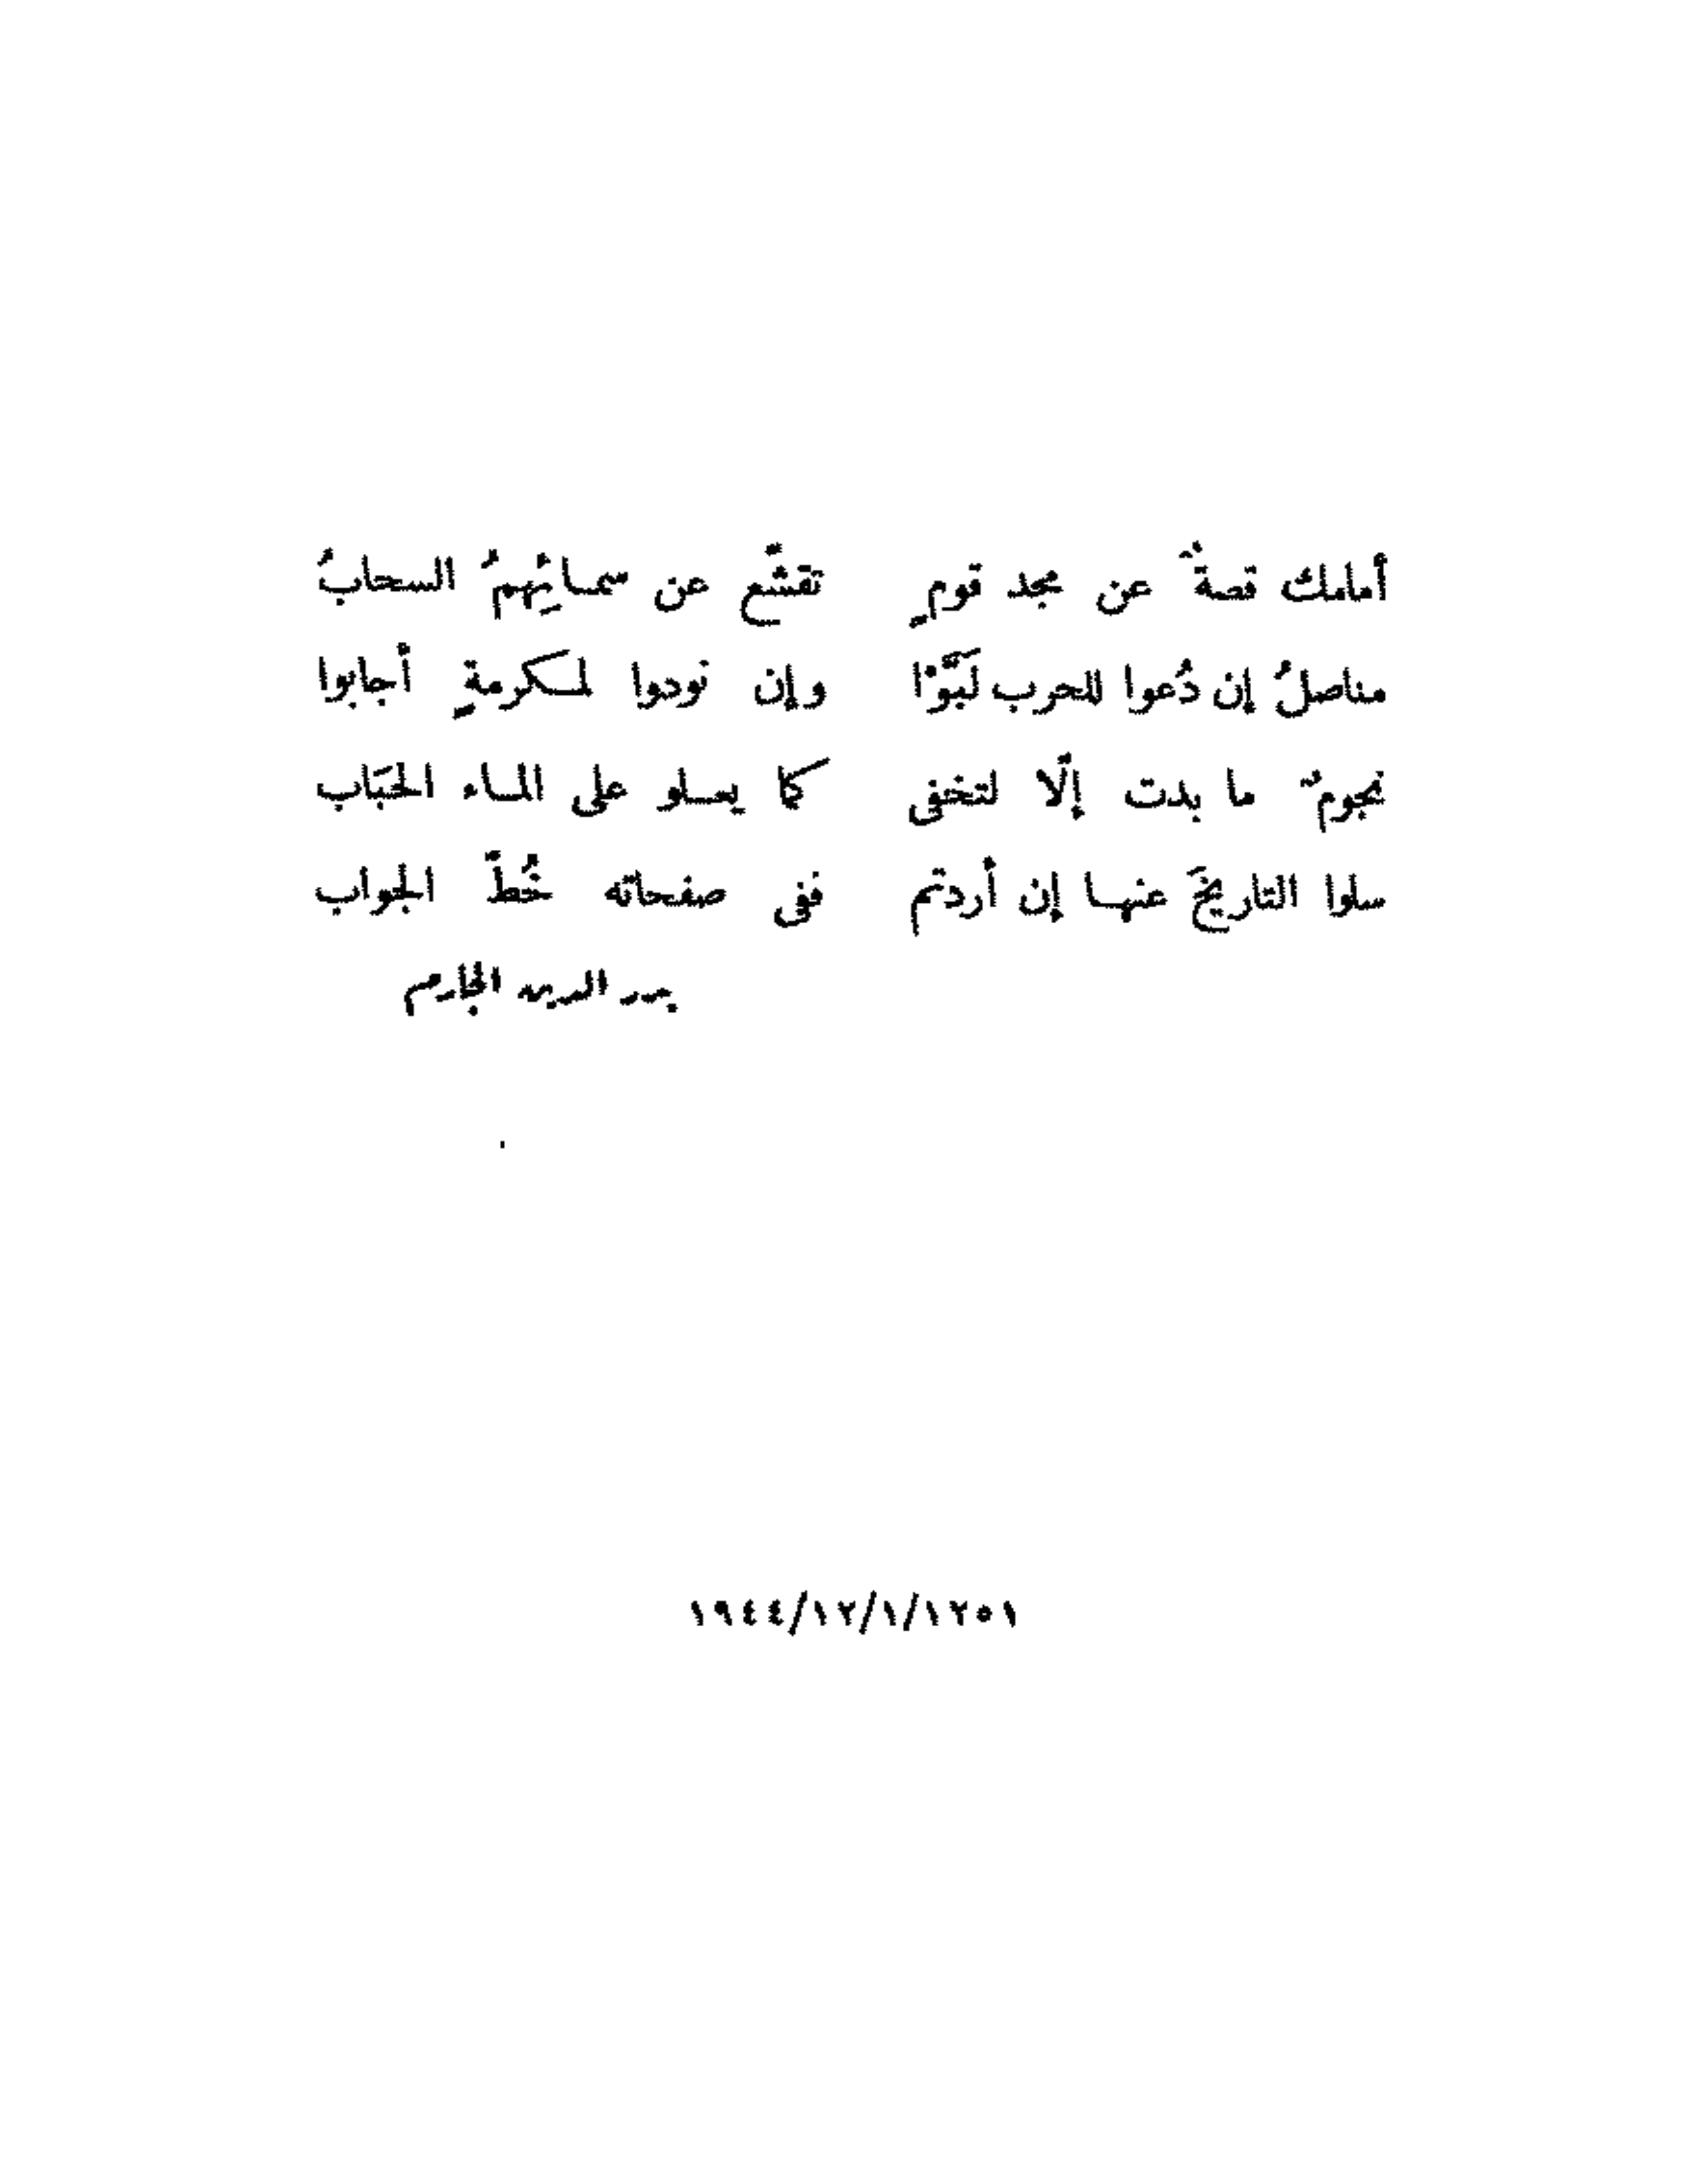 أمامك قصةٌ عن مجد قومٍ تقشَّع عن سمائِهُمُ السحابُ
مناصلُ إن دُعوا للحرب لَبَّوْا وإن نودوا لمكرمةٍ أجابوا
نجومٌ ما بدت إلَّا لتخفى كما يعلو على الماء الحَبَاب
سلوا التاريخَ عنها إن أردتم ففى صفحاته خُطَّ الجواب
بدر الدين الجارم
١٩٤٤/١٢/١/١٢٥١